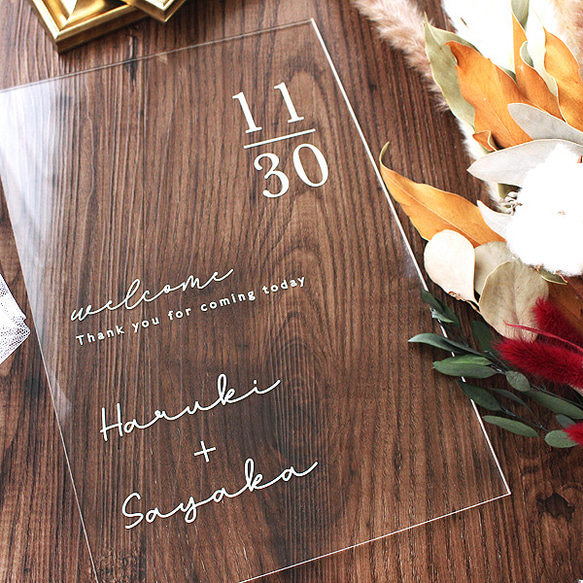 11
30
welcome
Thank you for coming today
Haruki
+
Sayaka